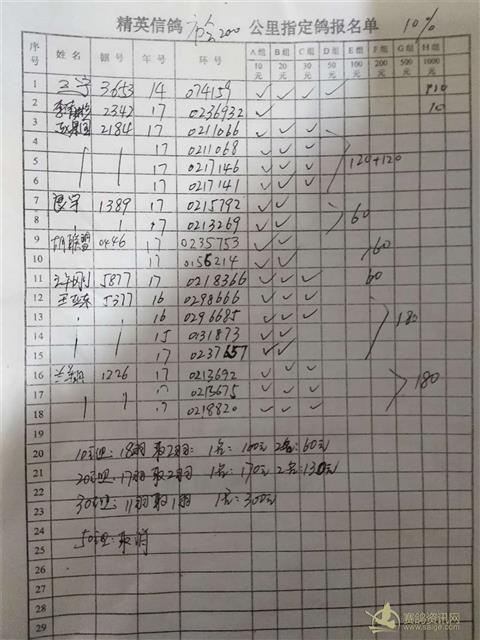 精英信鸽 市会200 公里指定鸽报名单 10%
序号 姓名 号 年号 环号 A组10元 B组20元 C组30元 D组50元 E组100元 F组200元 G组500元 H组1000元
1 王宇 3653 14 074159 ✓ ✓ ✓ ✓
2 2342 17 0236932 ✓ 10
3 2184 17 0211066 ✓ ✓ ✓
4 17 0211068 ✓ ✓ ✓ 120+120
5 17 0217146 ✓ ✓ ✓
6 17 0217141 ✓ ✓ ✓
7 1389 17 0215792 ✓ ✓ 60
8 17 0213269 ✓ ✓
9 胡联盟 0446 17 0235753 ✓ ✓ 60
10 17 0156214 ✓ ✓
11 5877 17 0218366 ✓ ✓ ✓ 60
12 5377 16 0298666 ✓ ✓ ✓
13 16 0296685 ✓ ✓ ✓ 180
14 15 0131873 ✓ ✓
15 17 0237657 ✓ ✓
16 1226 17 0213692 ✓ ✓ ✓
17 17 0213675 ✓ ✓ ✓ 180
18 17 0218820 ✓ ✓ ✓
19
20 10元组: 18羽取2羽: 1名: 100元 2名: 60元
21 20元组: 17羽取2羽 1名: 170元 2名: 130元
22
23 30元组: 11羽取1羽 1名: 300元
24
25 50元组: 取消
26
27
28
29
赛鸽资讯网
www.saige.com